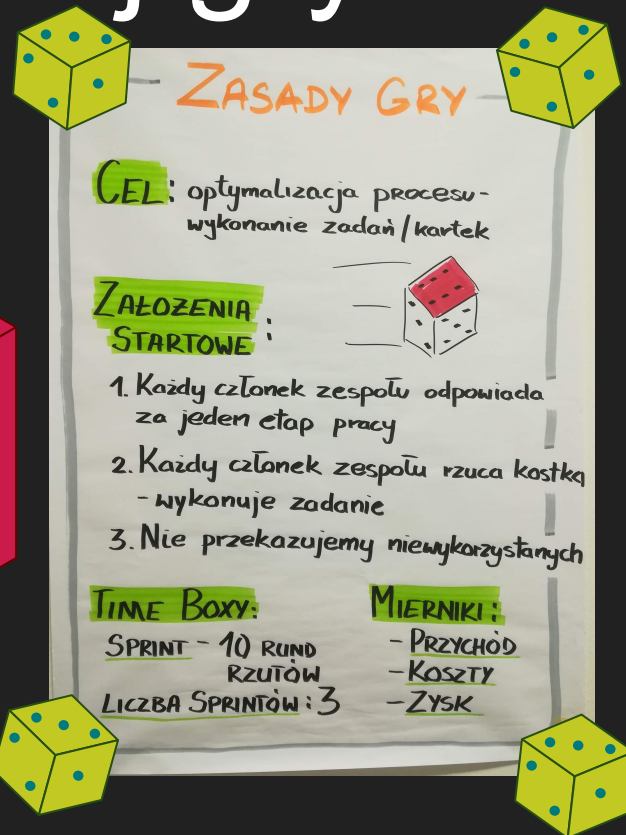 ZASADY GRY
CEL: optymalizacja procesu-
wykonanie zadań/kartek
ZAŁOŻENIA
STARTOWE:
1. Każdy członek zespołu odpowiada
za jeden etap pracy
2. Każdy członek zespołu rzuca kostką
- wykonuje zadanie
3. Nie przekazujemy niewykorzystanych
TIME BOXY:
SPRINT - 10 RUND
RZUTÓW
LICZBA SPRINTÓW: 3
MIERNIKI:
- PRZYCHÓD
- KOSZTY
- ZYSK